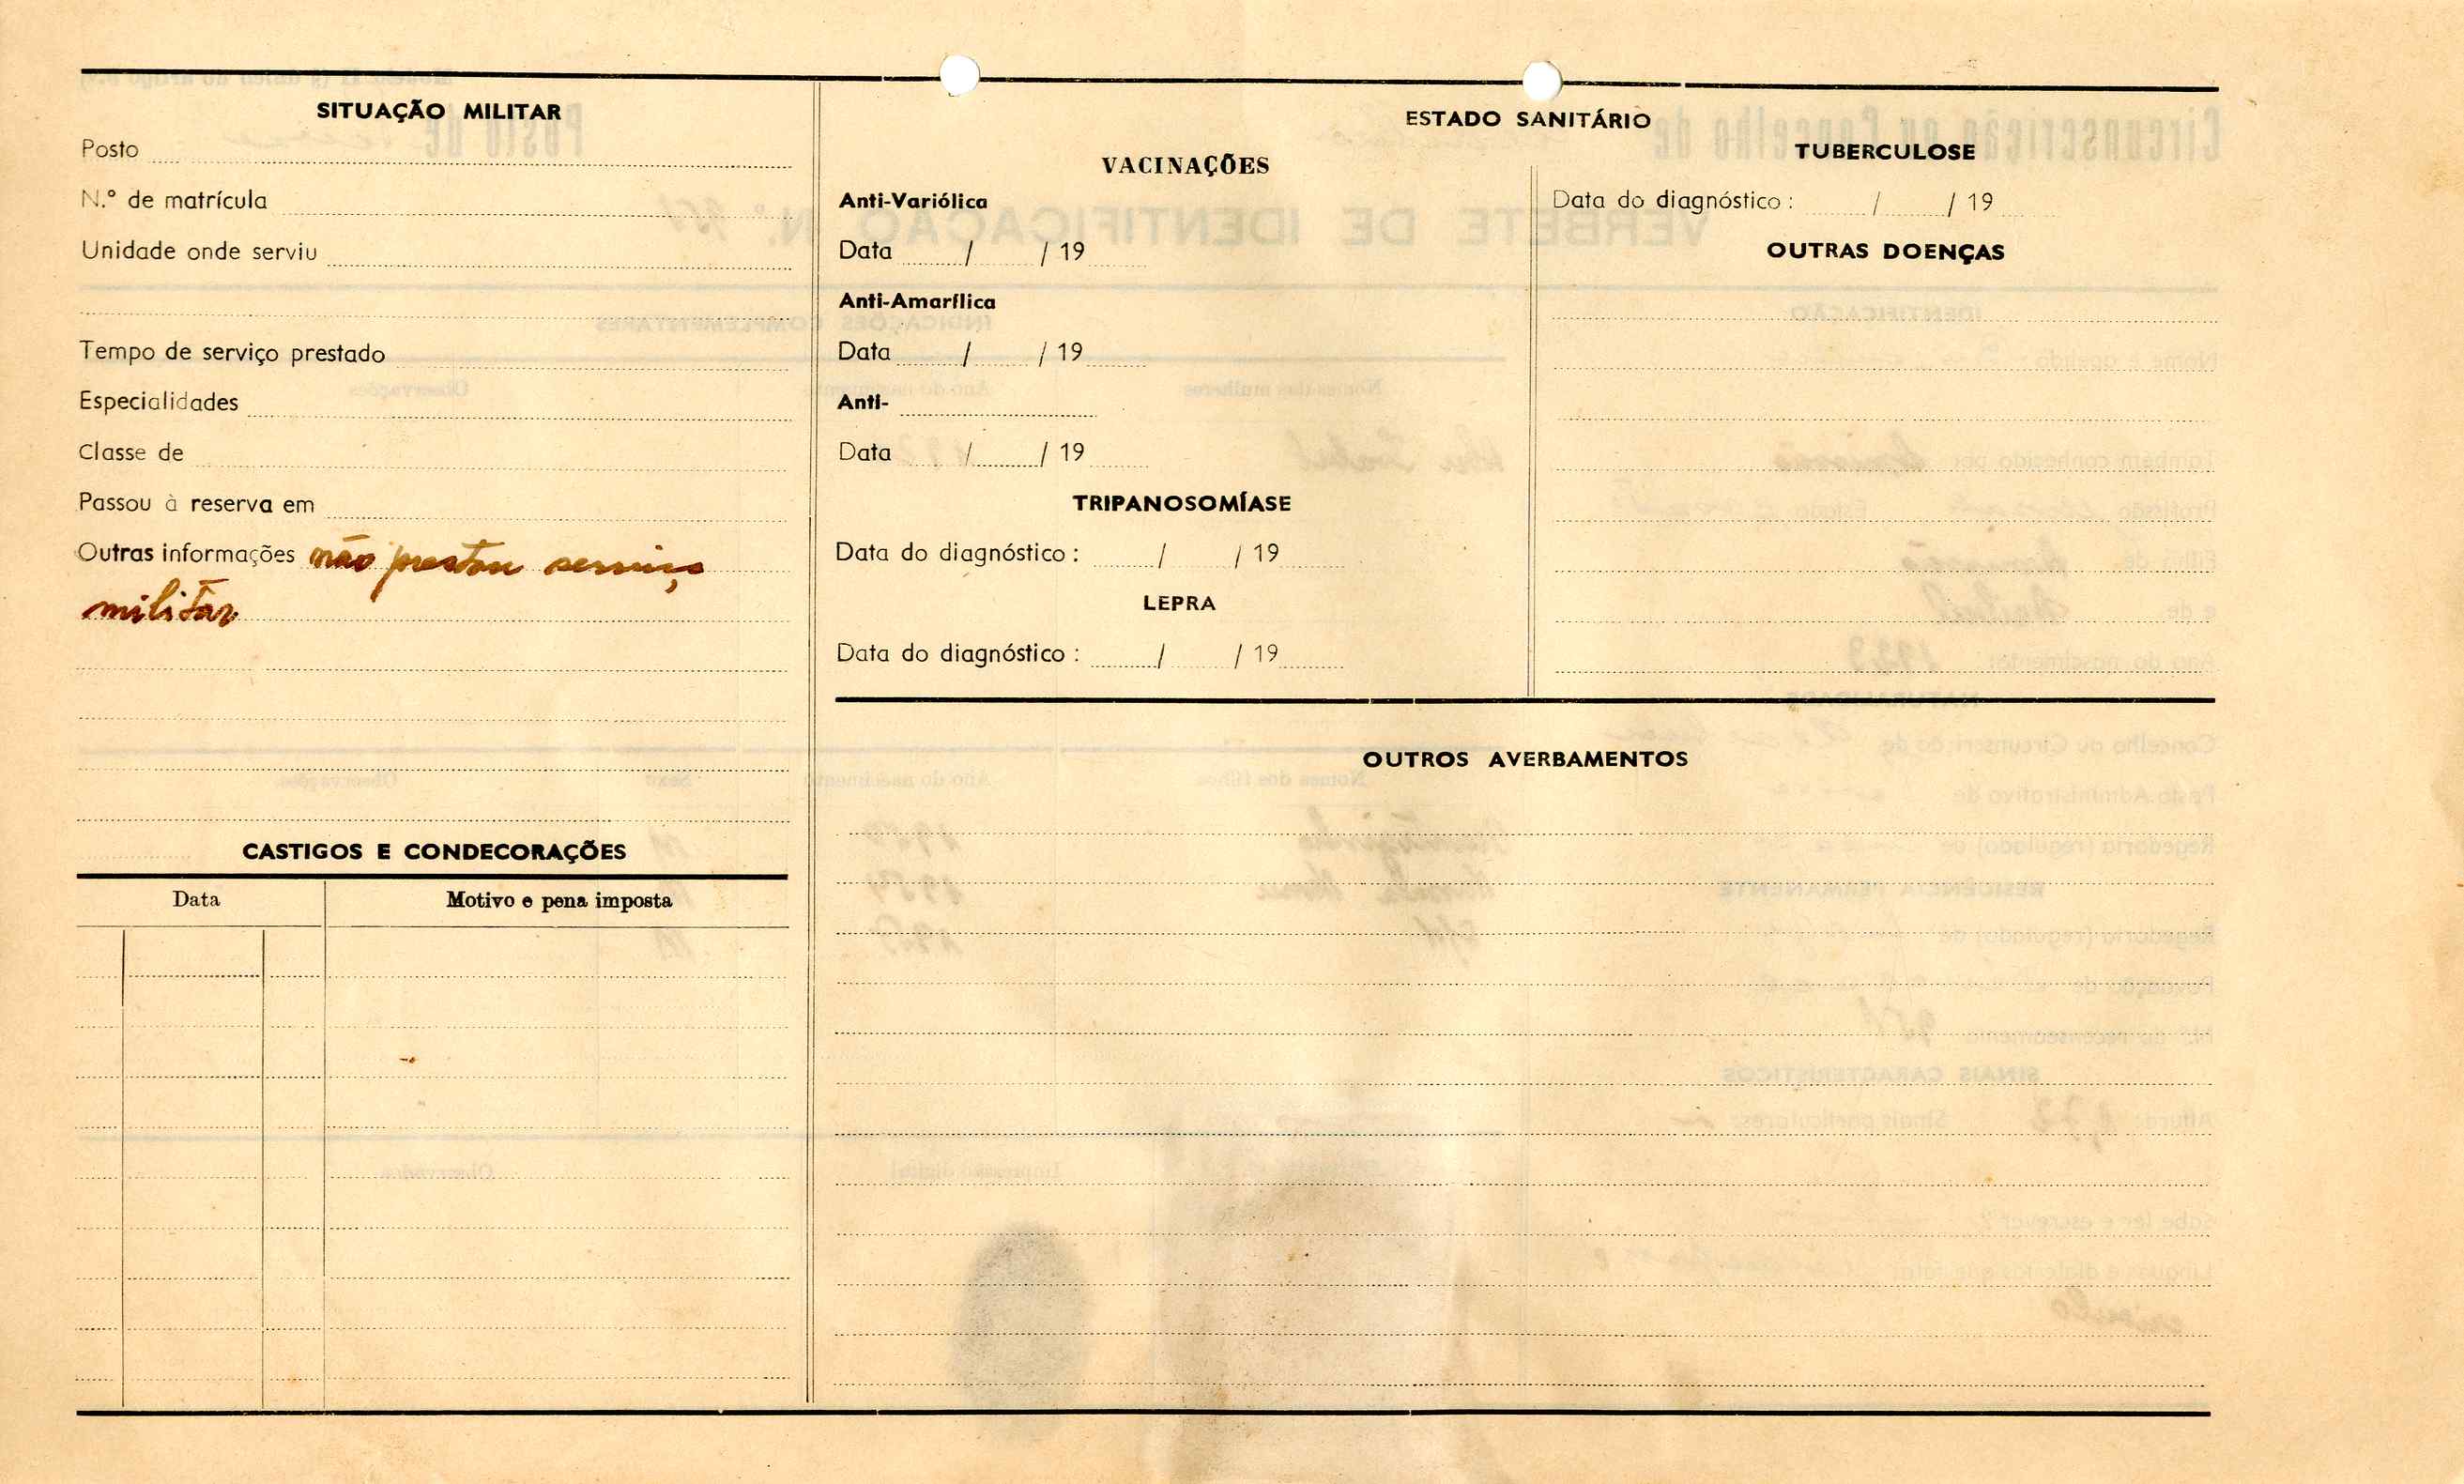 SITUAÇÃO MILITAR
Posto
N.º de matrícula
Unidade onde serviu
Tempo de serviço prestado
Especialidades
Classe de
Passou à reserva em
Outras informações não prestou serviço
militar
CASTIGOS E CONDECORAÇÕES
Data Motivo e pena imposta
ESTADO SANITÁRIO
VACINAÇÕES
Anti-Variólica
Data / / 19
Anti-Amarílica
Data / / 19
Anti-
Data / / 19
TRIPANOSOMÍASE
Data do diagnóstico : / / 19
LEPRA
Data do diagnóstico : / / 19
TUBERCULOSE
Data do diagnóstico : / / 19
OUTRAS DOENÇAS
OUTROS AVERBAMENTOS